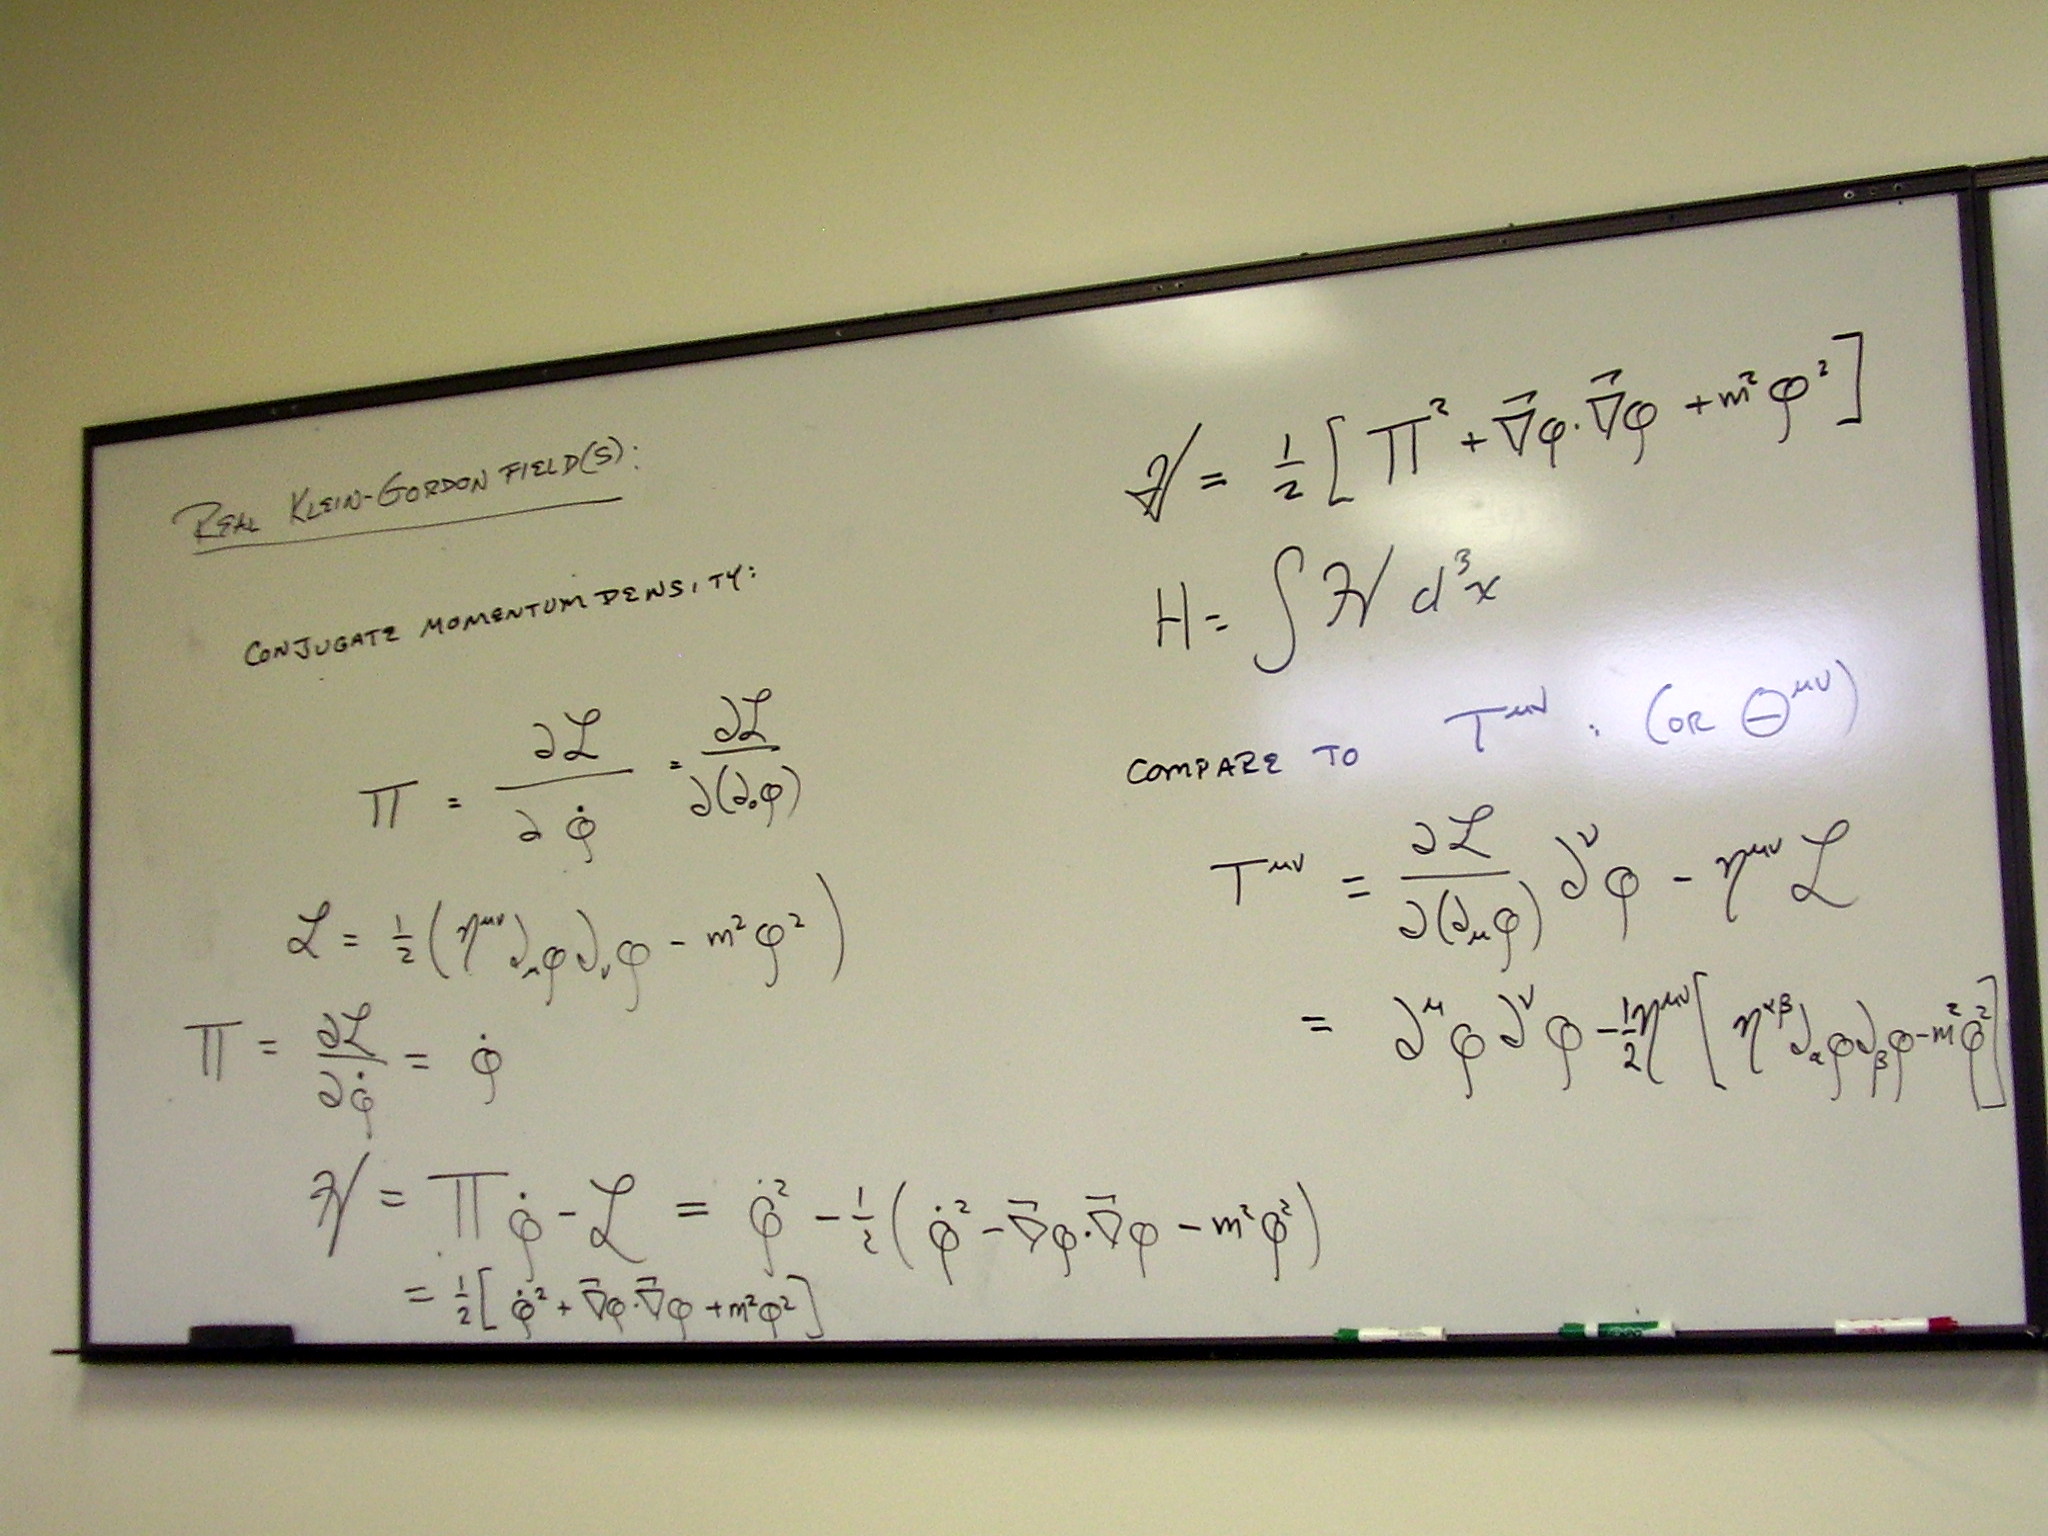 REAL KLEIN-GORDON FIELD(S):
CONJUGATE MOMENTUM DENSITY:
Π = ∂ℒ/∂φ̇ = ∂ℒ/∂(∂₀φ)
ℒ = ½(η^μν ∂_μφ ∂_νφ - m²φ²)
Π = ∂ℒ/∂φ̇ = φ̇
ℋ = Πφ̇ - ℒ = φ̇² - ½(φ̇² - ∇⃗φ·∇⃗φ - m²φ²)
= ½[φ̇² + ∇⃗φ·∇⃗φ + m²φ²]
ℋ = ½[Π² + ∇⃗φ·∇⃗φ + m²φ²]
H = ∫ℋ d³x
COMPARE TO T^μν : (OR Θ^μν)
T^μν = ∂ℒ/∂(∂_μφ) ∂^νφ - η^μν ℒ
= ∂^μφ ∂^νφ - ½η^μν[η^αβ ∂_αφ ∂_βφ - m²φ²]